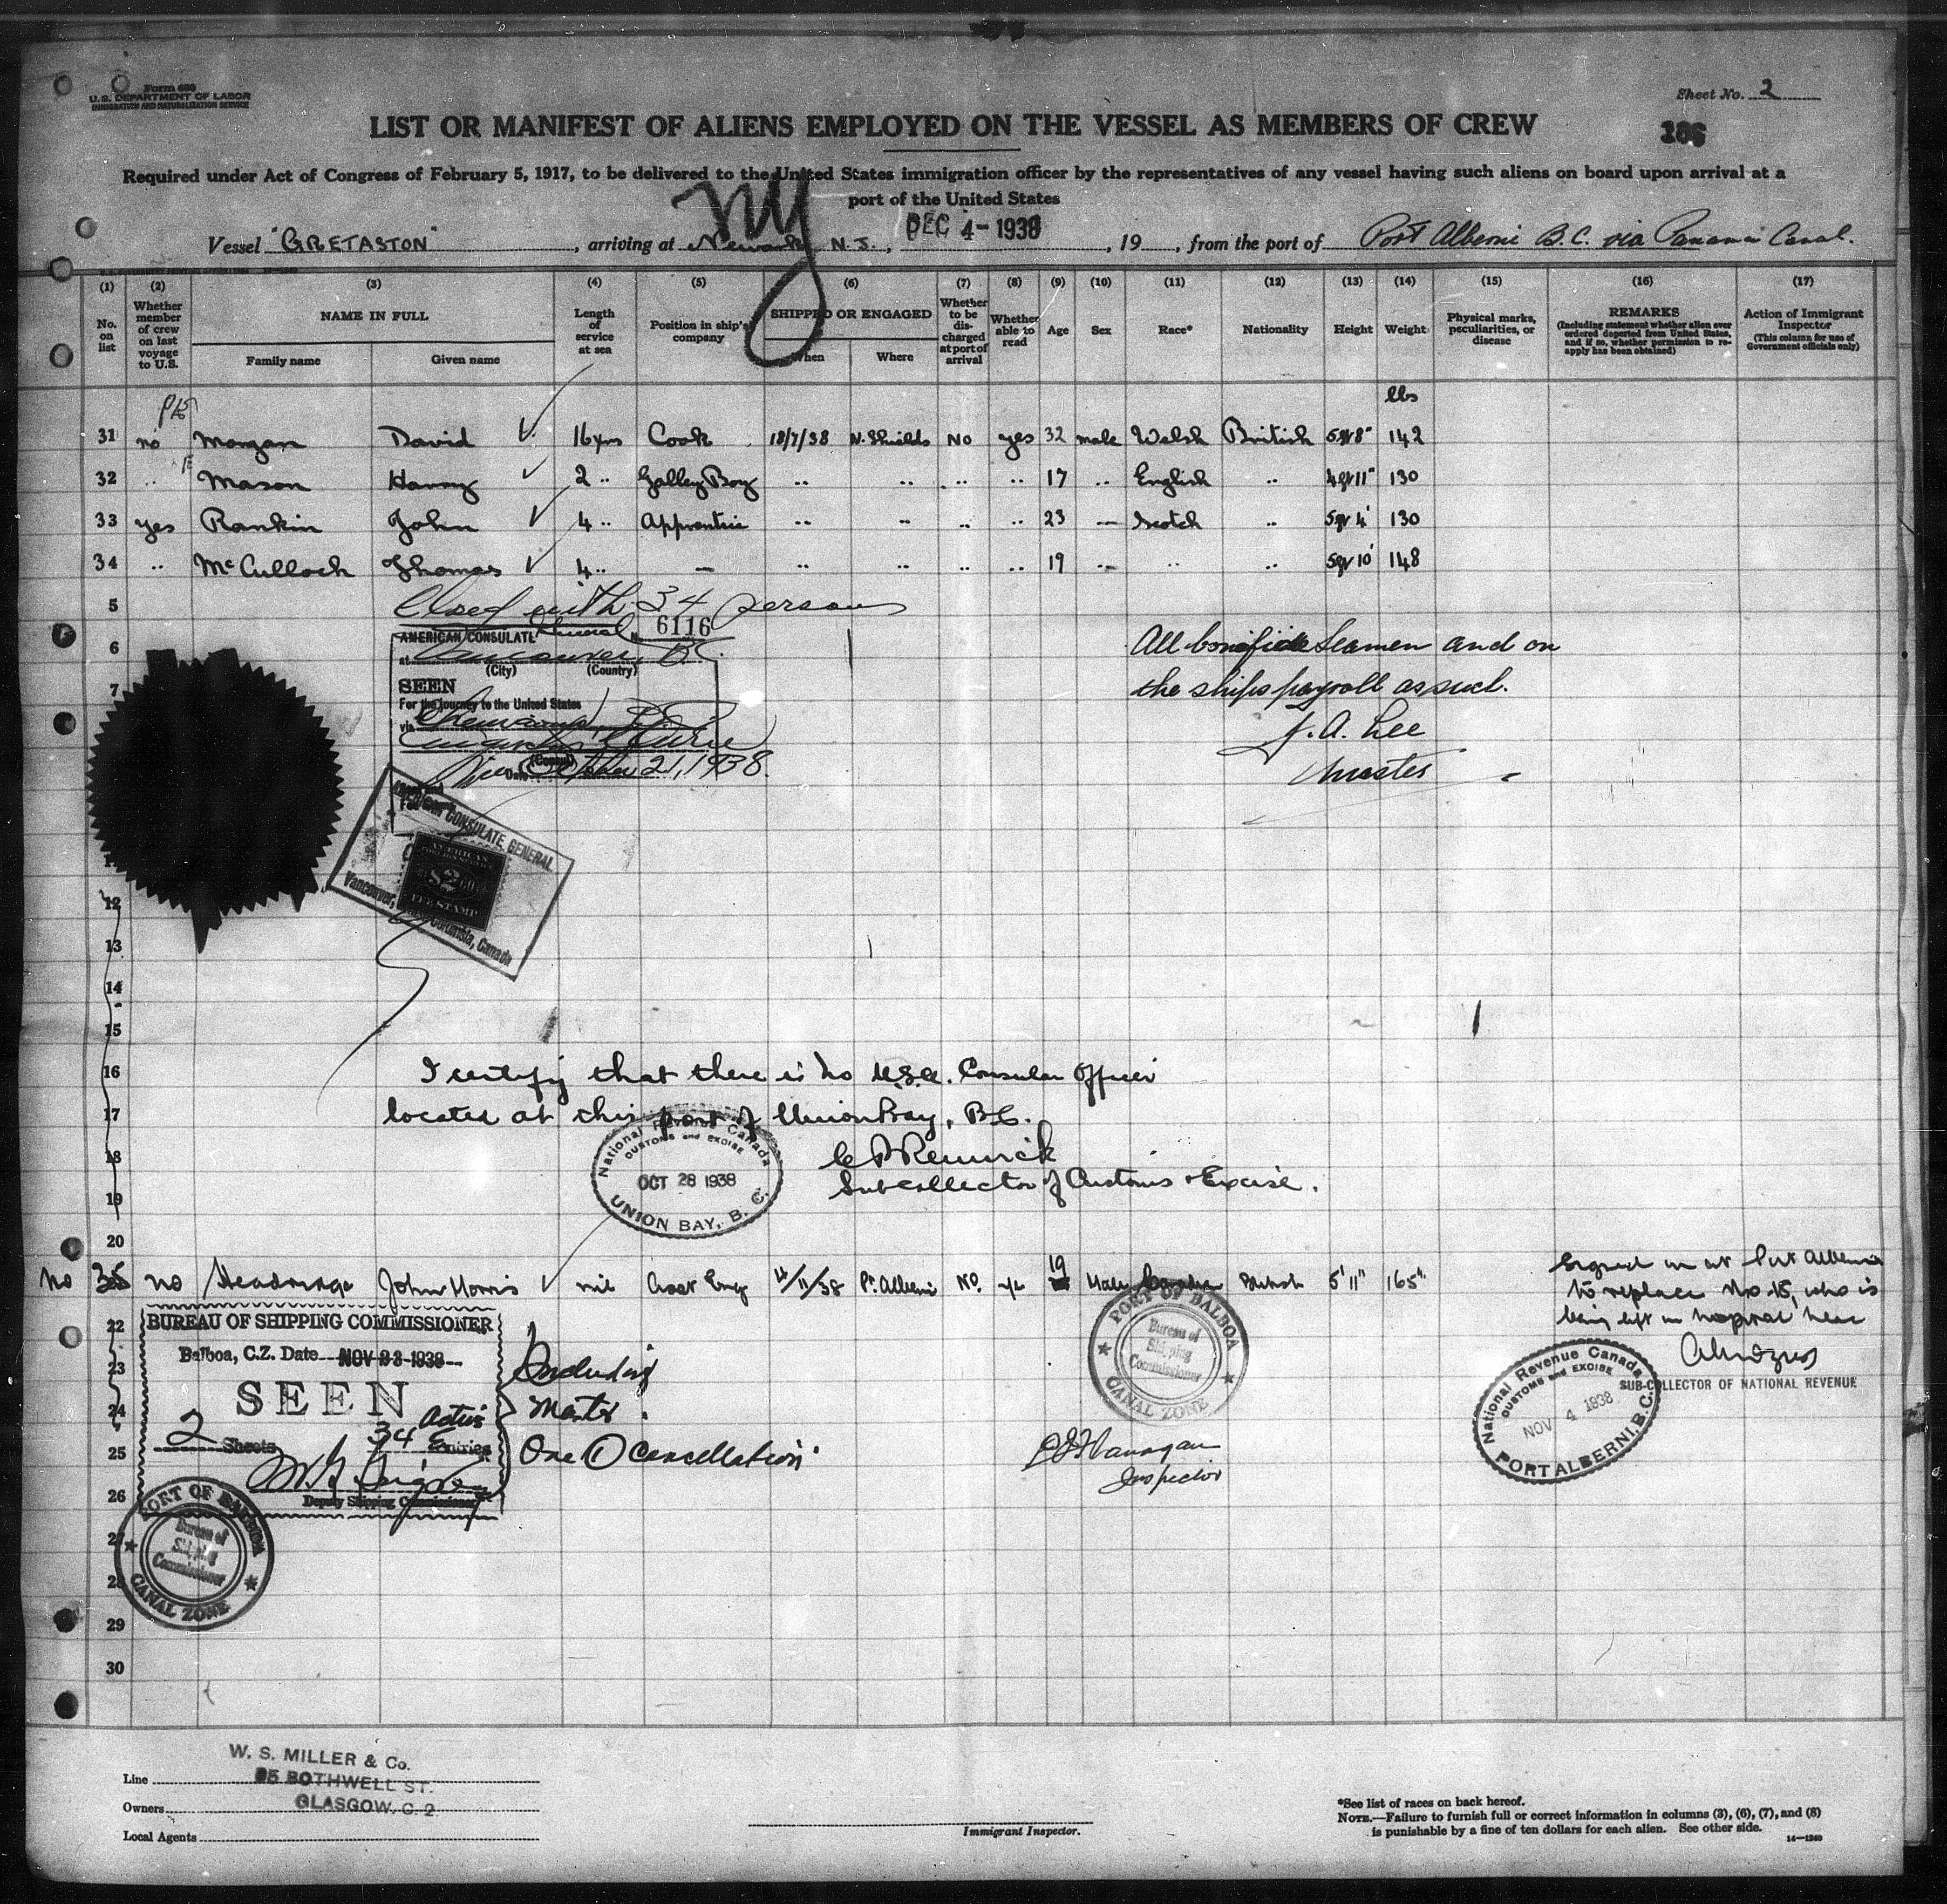 Form 680
U.S. DEPARTMENT OF LABOR
IMMIGRATION AND NATURALIZATION SERVICE
Sheet No. 2
LIST OR MANIFEST OF ALIENS EMPLOYED ON THE VESSEL AS MEMBERS OF CREW
Required under Act of Congress of February 5, 1917, to be delivered to the United States immigration officer by the representatives of any vessel having such aliens on board upon arrival at a
port of the United States
NY
Vessel "GRETASTON", arriving at Newark N.J., DEC 4-1938, 19, from the port of Port Alberni B.C. via Panama Canal.
(1) (2) (3) (4) (5) (6) (7) (8) (9) (10) (11) (12) (13) (14) (15) (16) (17)
No. on list
Whether member of crew on last voyage to U.S.
NAME IN FULL
Family name
Given name
Length of service at sea
Position in ship's company
SHIPPED OR ENGAGED
When
Where
Whether to be discharged at port of arrival
Whether able to read
Age
Sex
Race*
Nationality
Height
Weight
Physical marks, peculiarities, or disease
REMARKS
(Including statement whether alien ever ordered deported from United States, and if so, whether permission to reapply has been obtained)
Action of Immigrant Inspector
(This column for use of Government officials only)
lbs
31 no Morgan David 16 yrs Cook 18/7/38 N. Shields No yes 32 male Welsh British 5 ft 8" 142
32 .. Mason Harry 2 .. Galley Boy .. .. .. .. 17 .. English .. 4 ft 11" 130
33 yes Rankin John 4 .. Apprentice .. .. .. .. 23 — Scotch .. 5 ft 4" 130
34 .. McCulloch Thomas 4 .. — .. .. .. .. 19 .. .. .. 5 ft 10" 148
5
Closed with 34 persons
6
AMERICAN CONSULATE General No. 6116
at Vancouver, B.C.
(City) (Country)
All bonafide Seamen and on
7
SEEN
the ships payroll as such.
For the journey to the United States
via
J. A. Lee
(Consul)
Date October 21, 1938.
Master
AMERICAN CONSULATE GENERAL
AMERICAN
$2
FEE STAMP
Vancouver, British Columbia, Canada
12
13
14
15
16
I certify that there is no U.S.A. Consular Officer
17
located at this port of Union Bay, B.C.
National Revenue Canada
CUSTOMS and EXCISE
OCT 28 1938
UNION BAY, B. C.
18
C P Renwick
19
Sub Collector of Customs & Excise.
20
No 35 no John Morris nil Asst Eng 4/11/38 Pt. Alberni No. 19 Male Canadian British 5'11" 165
Signed on at Port Alberni
to replace No 15, who is
being left in hospital here
SUB-COLLECTOR OF NATIONAL REVENUE
National Revenue Canada
CUSTOMS and EXCISE
NOV 4 1938
PORT ALBERNI, B.C.
22
BUREAU OF SHIPPING COMMISSIONER
Balboa, C.Z. Date NOV 23 1938
23
SEEN
24
2 Sheets 34 Entries
25
Deputy Shipping Commissioner
Including
Master.
One (1) Cancellation
PORT OF BALBOA
Bureau of
Shipping
Commissioner
CANAL ZONE
Inspector
26
PORT OF BALBOA
Bureau of
Shipping
Commissioner
CANAL ZONE
27
28
29
30
W. S. MILLER & Co.
Line
BOTHWELL ST.
Owners
GLASGOW, C. 2
Local Agents
Immigrant Inspector.
*See list of races on back hereof.
NOTE.—Failure to furnish full or correct information in columns (3), (6), (7), and (8)
is punishable by a fine of ten dollars for each alien. See other side.
14—1240